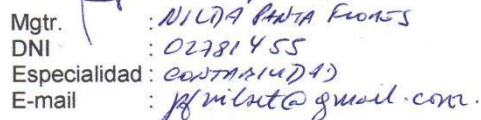 Mgtr. : NILDA PANTA FLORES
DNI : 02781455
Especialidad : CONTABILIDAD
E-mail : @gmail.com.